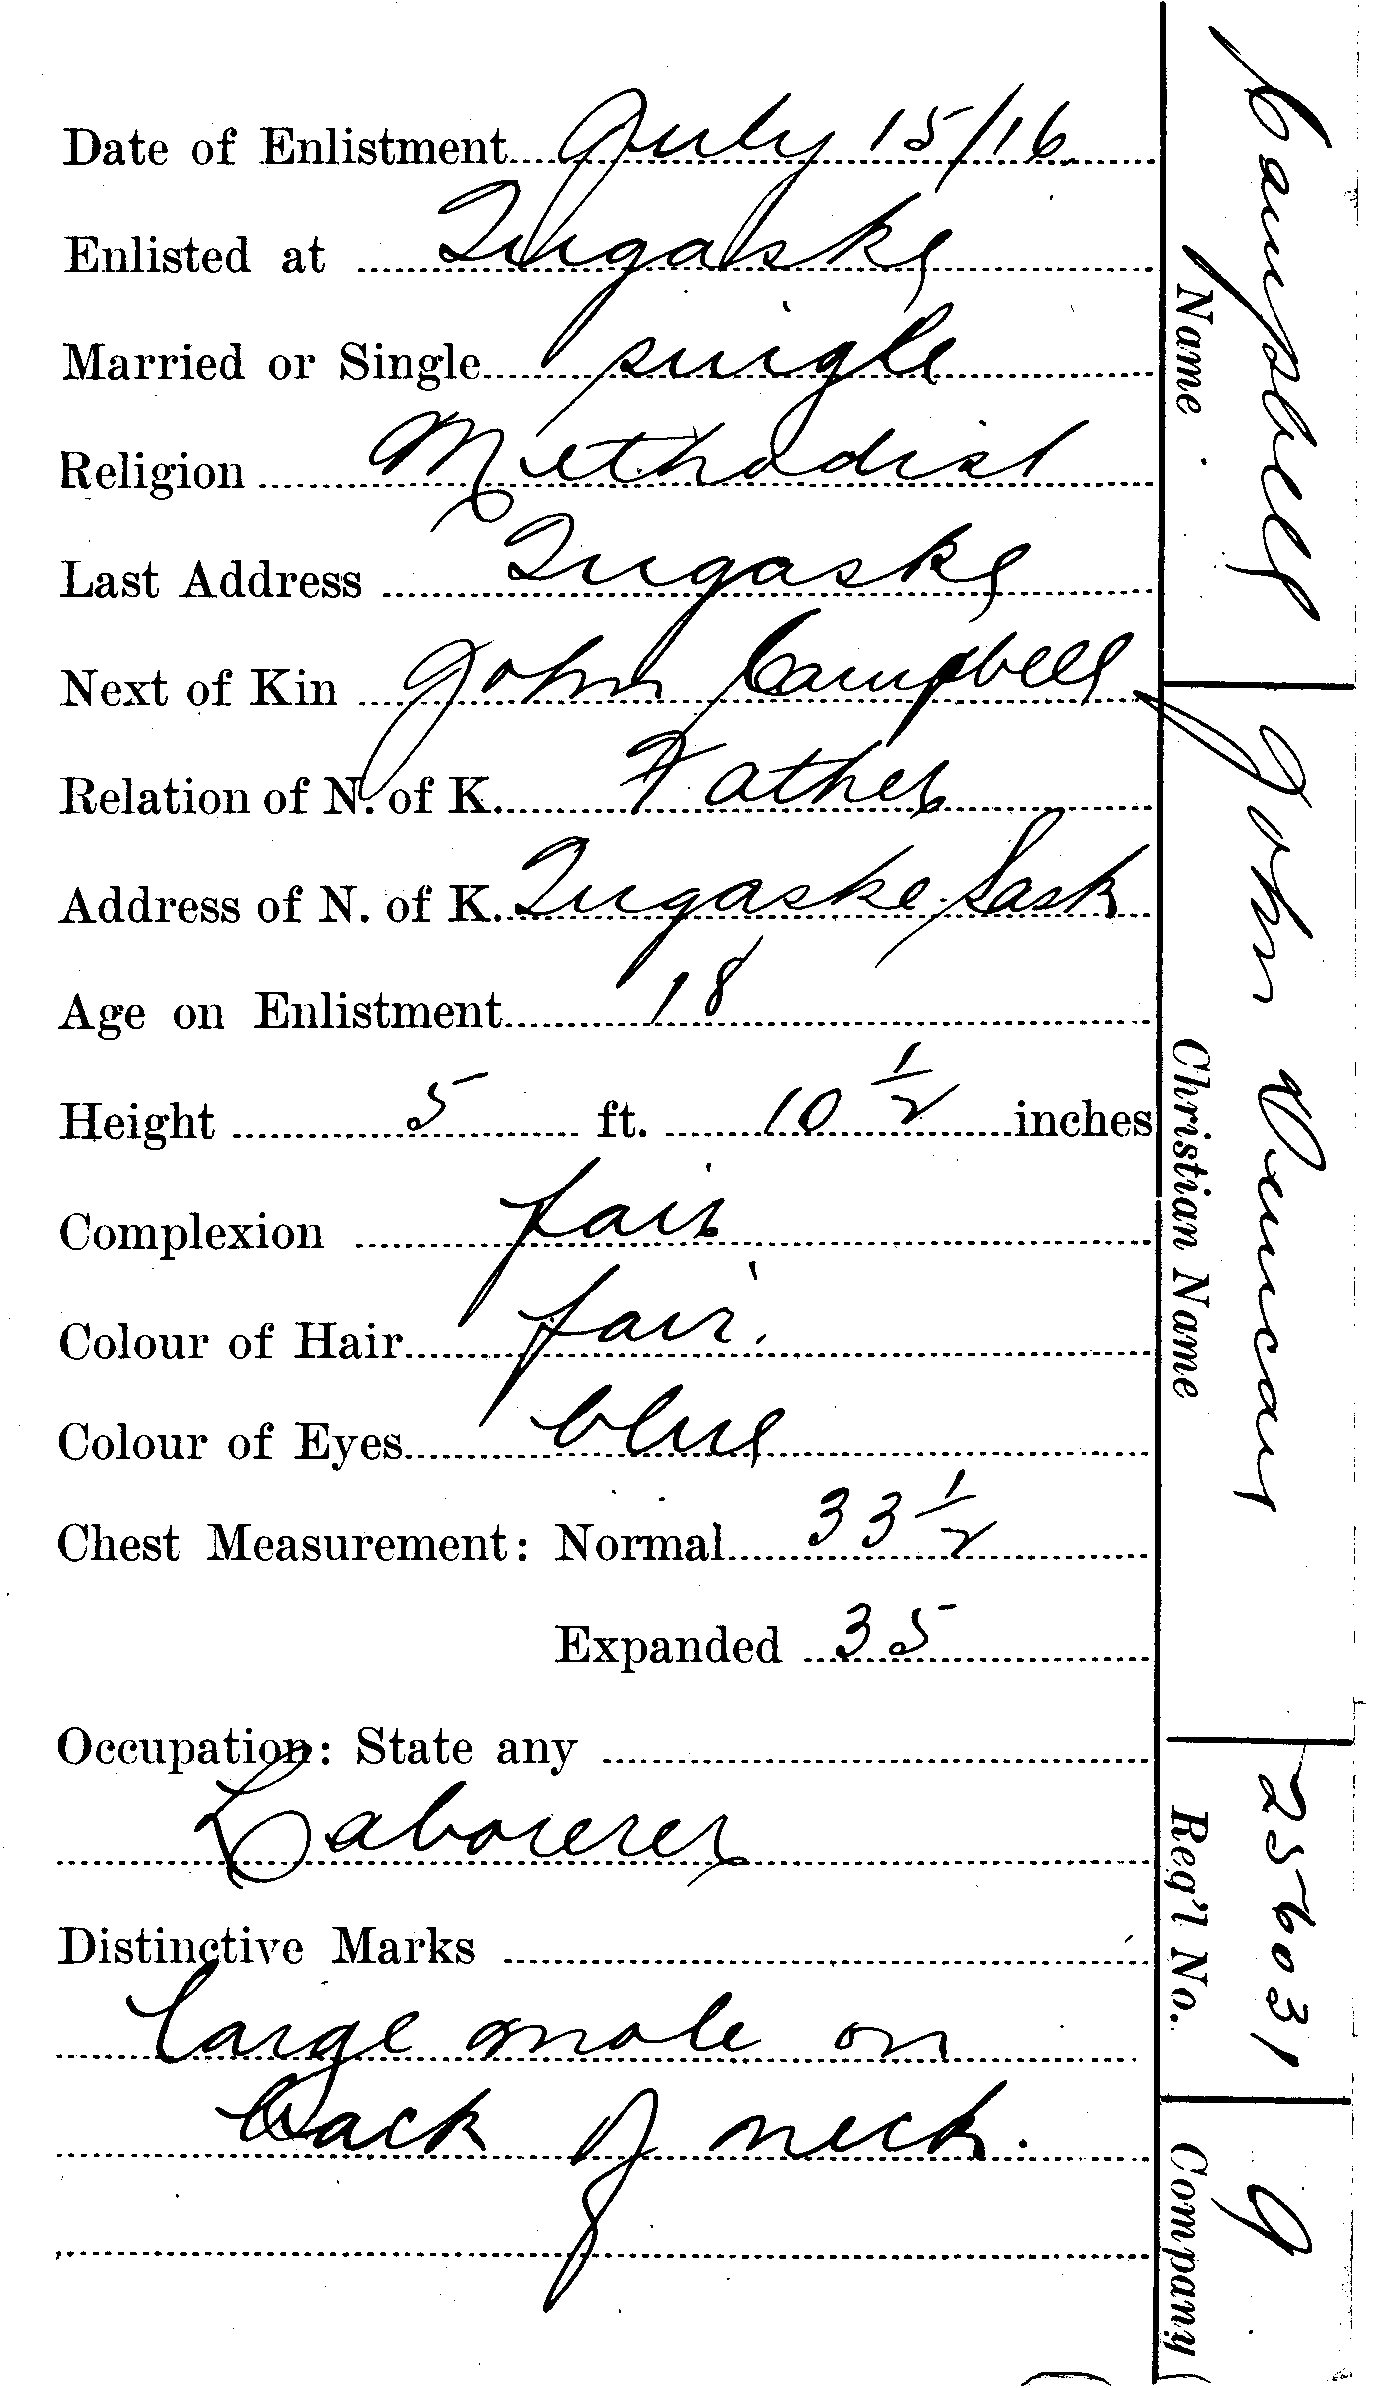 Date of Enlistment July 15/16.
Enlisted at Tugaske
Married or Single single
Religion Methodist
Last Address Tugaske
Next of Kin John Campbell
Relation of N. of K. Father
Address of N. of K. Tugaske, Sask
Age on Enlistment 18
Height 5 ft. 10 1/2 inches
Complexion fair
Colour of Hair fair.
Colour of Eyes blue
Chest Measurement: Normal 33 1/2
Expanded 35
Occupation: State any
Laborerer
Distinctive Marks
large mole on
back of neck.
Campbell John Duncan 256031 G
Name Christian Name Reg'l No. Company